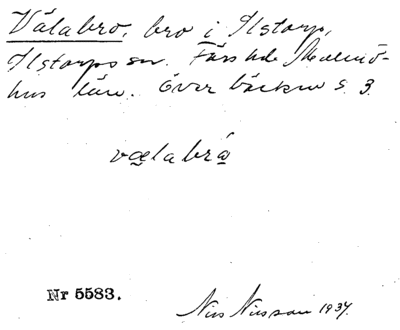 Välabro, bro i Ilstorp,
Ilstorps sn. Färs hde Malmö-
hus län. Över bäcken s. 3.
vælabrå
Nr 5583.
Nils Nilsson 1937.